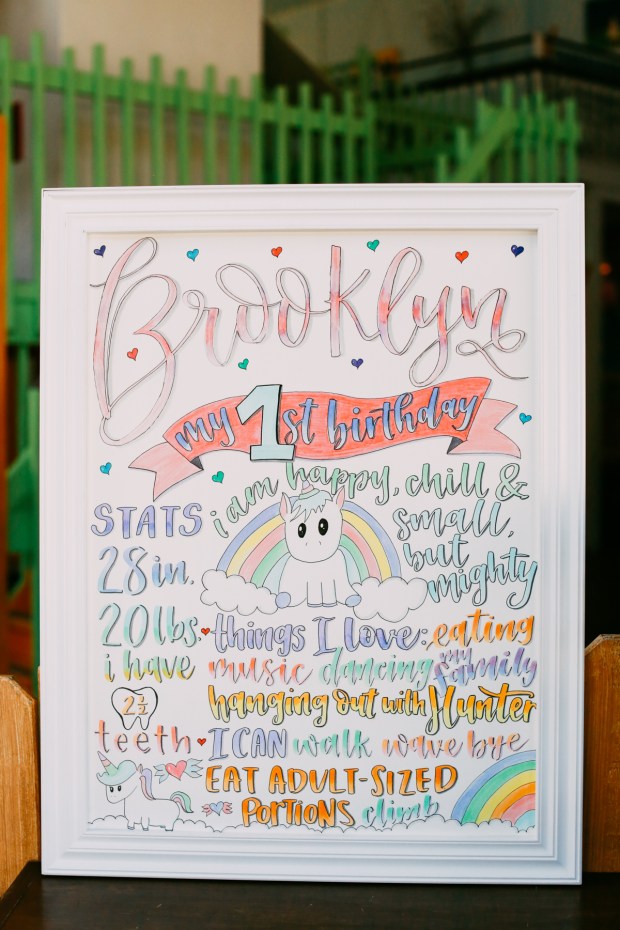 Brooklyn
my 1st birthday
i am happy, chill &
small,
but
mighty
STATS
28 in.
20 lbs.
i have
2 1/2
teeth
things I love: eating
music dancing my family
hanging out with Hunter
I CAN walk wave bye
EAT ADULT-SIZED
PORTIONS climb